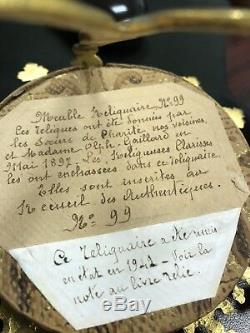 Meuble Reliquaire, No 99
Les Reliques ont été données par
les Sœurs de Charité, nos voisines,
et Madame Olph. Gaillard en
Mai 1897. Les Religieuses Clarisses
les ont enchassées dans ce reliquaire.
Elles sont inscrites au
Recueil des Authentiques.
No 99
Ce Reliquaire a été remis
en état en 1941 - Voir la
note au livre relié.